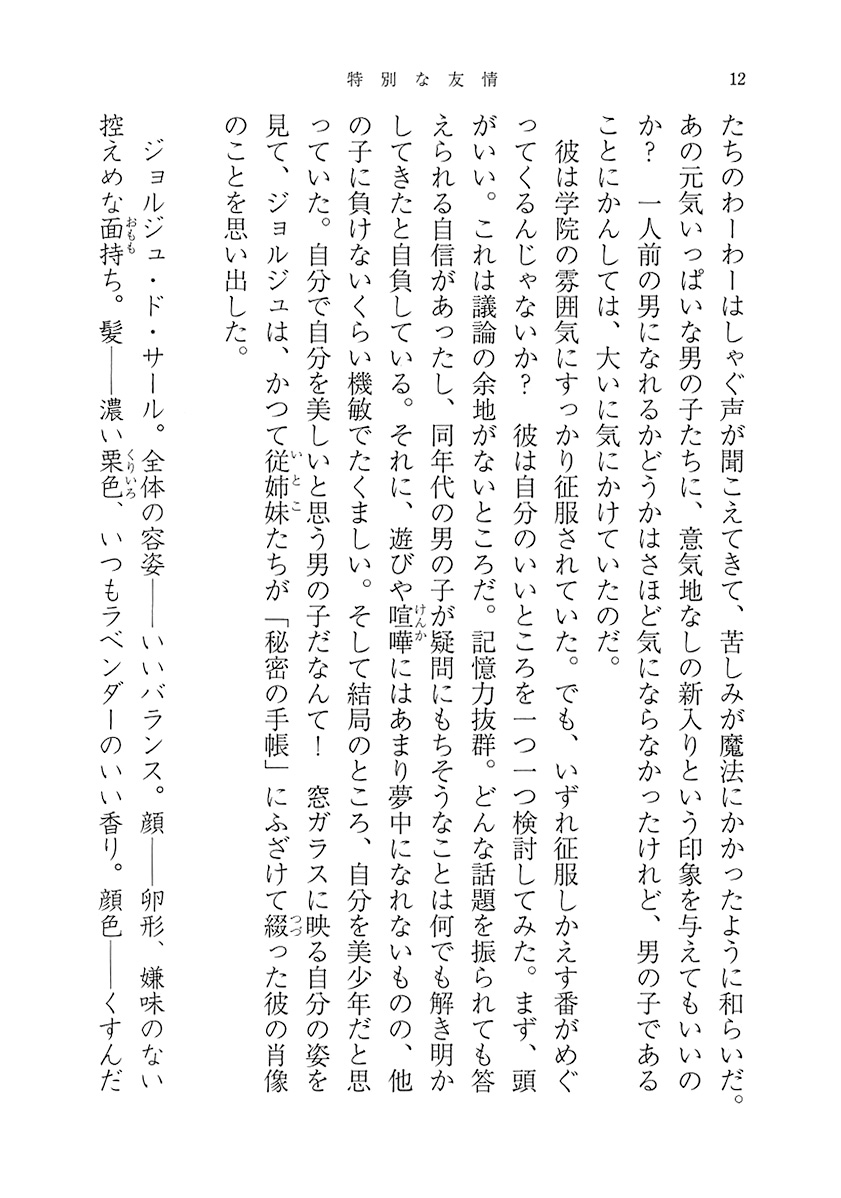 特別な友情
12
たちのわーわーはしゃぐ声が聞こえてきて、苦しみが魔法にかかったように和らいだ。
あの元気いっぱいな男の子たちに、意気地なしの新入りという印象を与えてもいいの
か？　一人前の男になれるかどうかはさほど気にならなかったけれど、男の子である
ことにかんしては、大いに気にかけていたのだ。
　彼は学院の雰囲気にすっかり征服されていた。でも、いずれ征服しかえす番がめぐ
ってくるんじゃないか？　彼は自分のいいところを一つ一つ検討してみた。まず、頭
がいい。これは議論の余地がないところだ。記憶力抜群。どんな話題を振られても答
えられる自信があったし、同年代の男の子が疑問にもちそうなことは何でも解き明か
してきたと自負している。それに、遊びや喧嘩にはあまり夢中になれないものの、他
の子に負けないくらい機敏でたくましい。そして結局のところ、自分を美少年だと思
っていた。自分で自分を美しいと思う男の子だなんて！　窓ガラスに映る自分の姿を
見て、ジョルジュは、かつて従姉妹たちが「秘密の手帳」にふざけて綴った彼の肖像
のことを思い出した。
　ジョルジュ・ド・サール。全体の容姿――いいバランス。顔――卵形、嫌味のない
控えめな面持ち。髪――濃い栗色、いつもラベンダーのいい香り。顔色――くすんだ